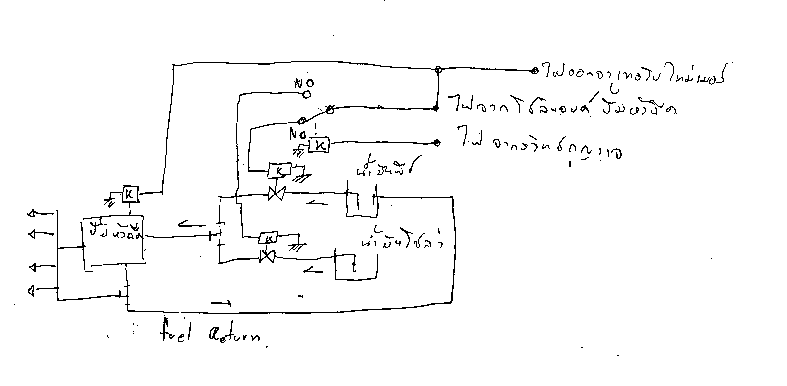 ไฟออกจากเทอร์โบไทม์เมอร์
NO
ไฟจากโซลินอยด์ ปั๊มหัวฉีด
NO
K
ไฟ จากสวิทช์กุญแจ
K
น้ำมันพืช
K
ปั๊มหัวฉีด
K
น้ำมันโซล่า
fuel Return